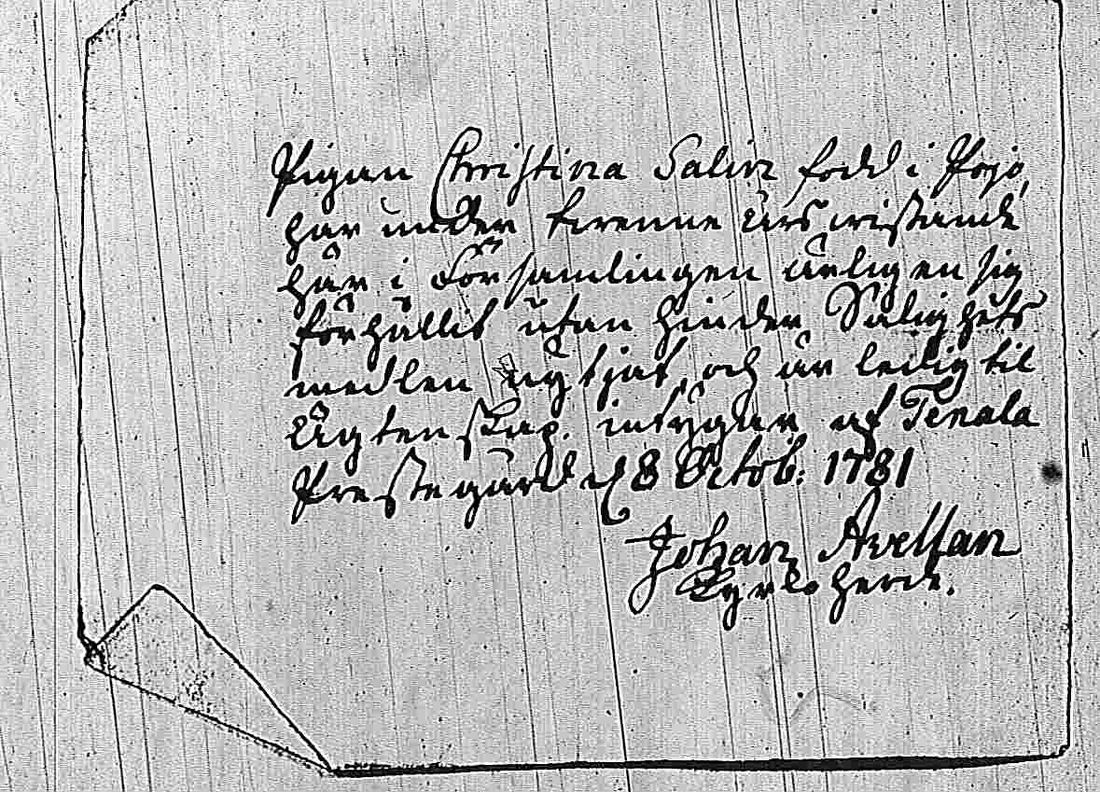 Pigan Christina Salin född i Pojo,
har under trenne års wistande
här i Församlingen ärligen sig
förhållit utan hinder Salighets
medlen nyttjat, och är ledig til
Ägtenskap. intygar af Tenala
Prestegård d. 8 Octob: 1781
Johan Avellan
Kyrkoherde.